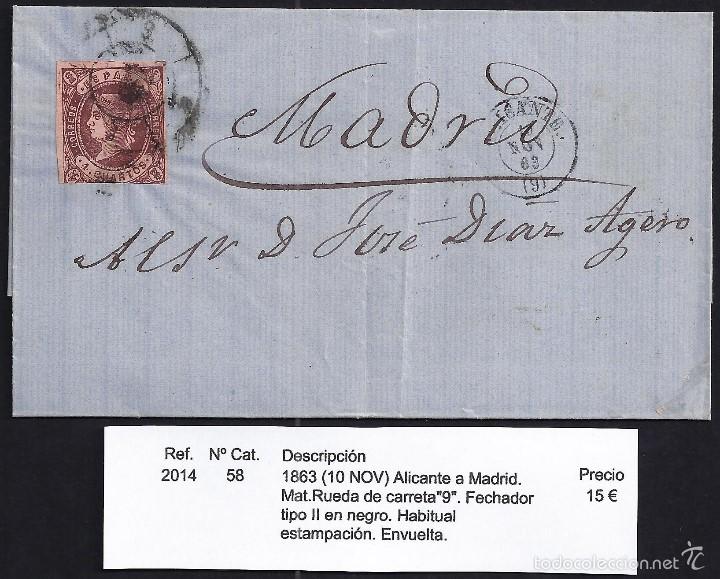 CORREOS
ESPAÑA
4 CUARTOS
Madrid
ALICANTE
NOV
63
(9)
Al Sr. D. José Díaz Agero.
Ref. Nº Cat. Descripción
2014 58 1863 (10 NOV) Alicante a Madrid. Precio
Mat.Rueda de carreta"9". Fechador 15 €
tipo II en negro. Habitual
estampación. Envuelta.
todocoleccion